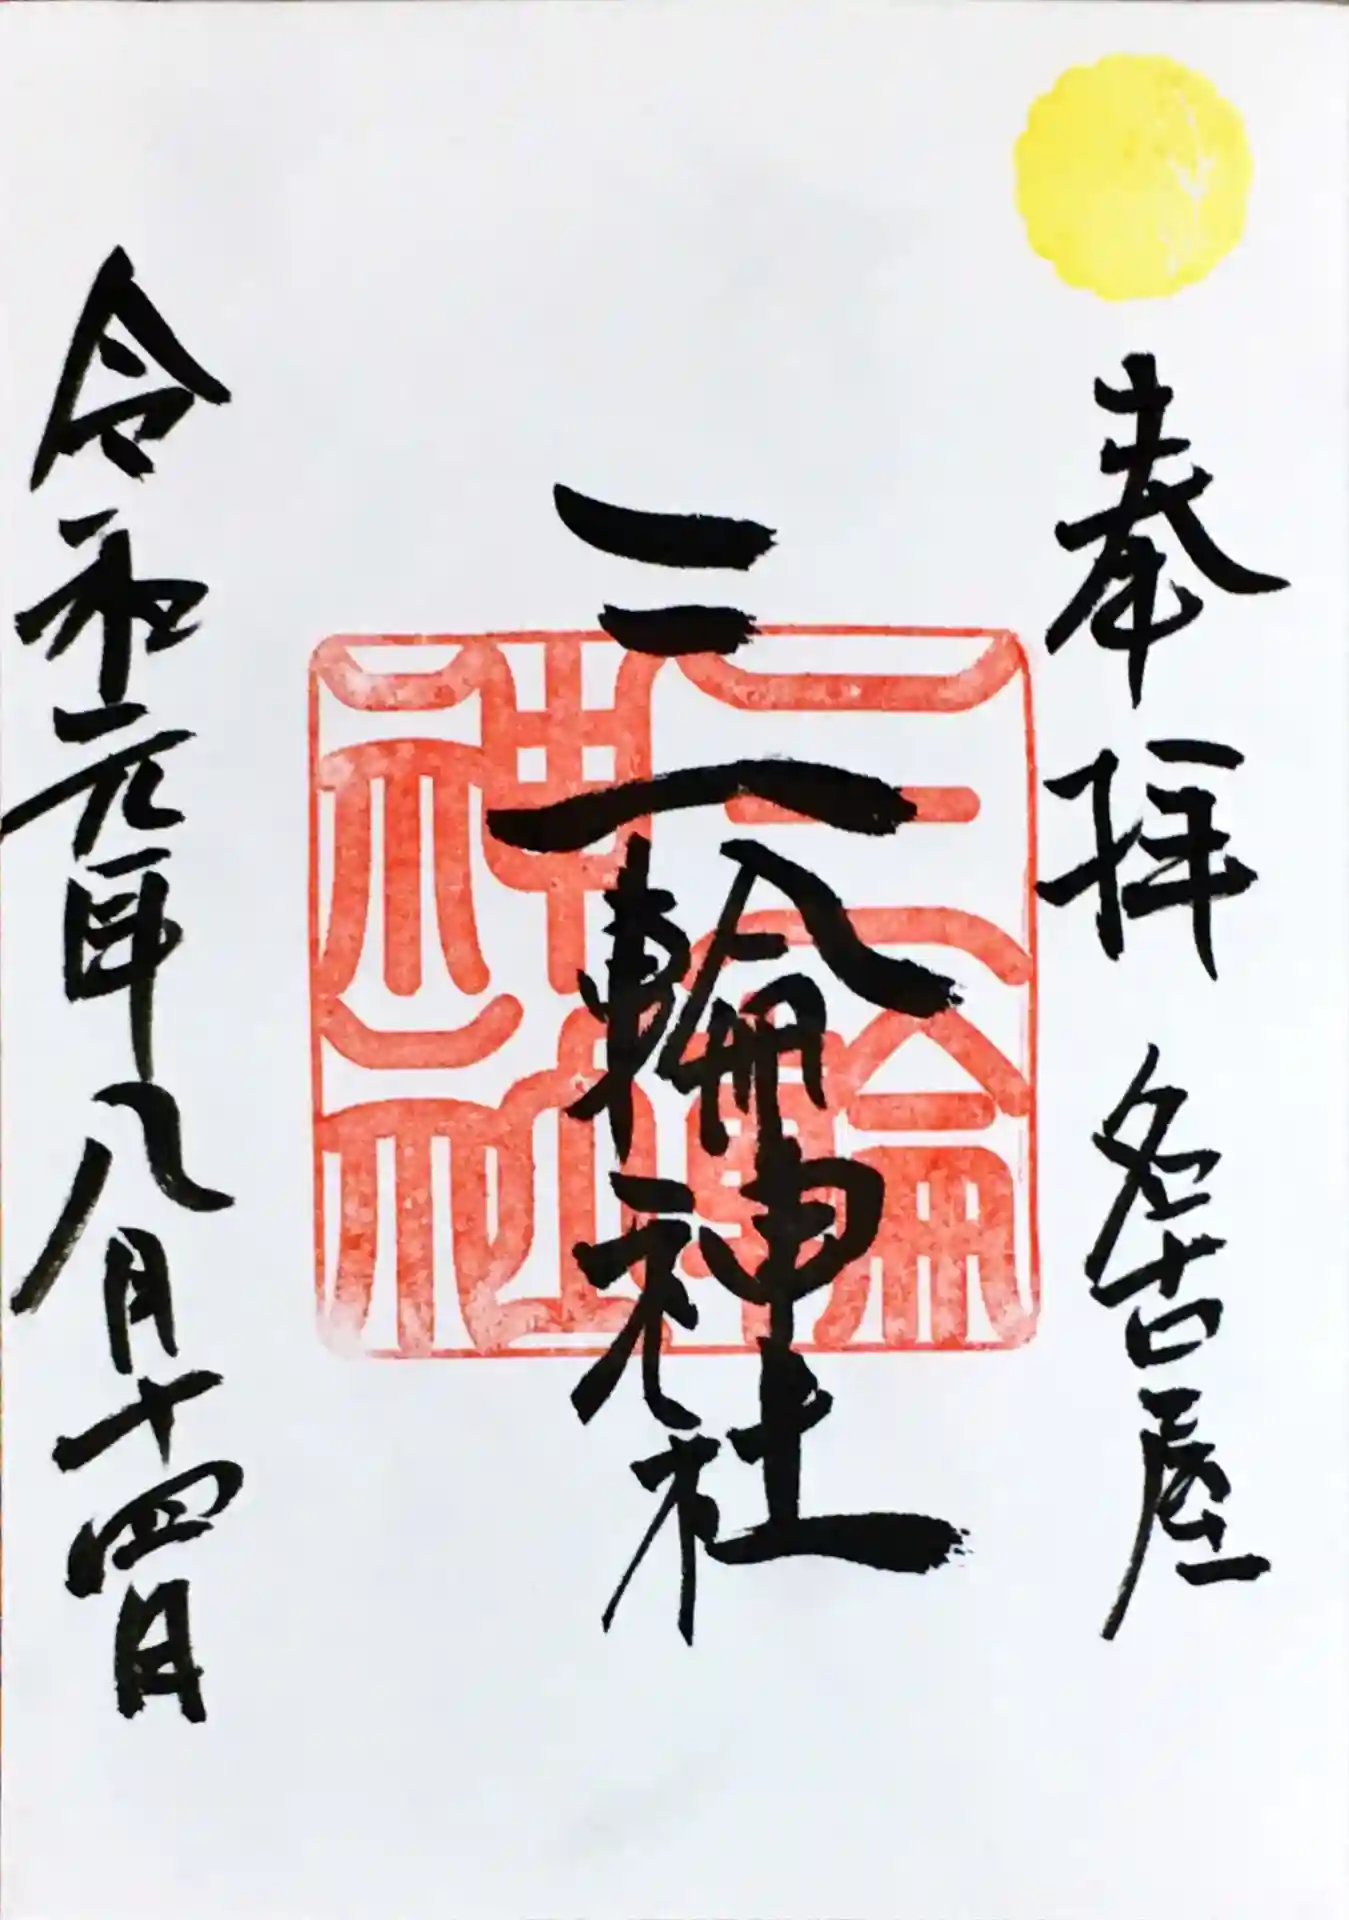 奉拝 名古屋
三輪神社
三輪
神社
令和元年八月十四日